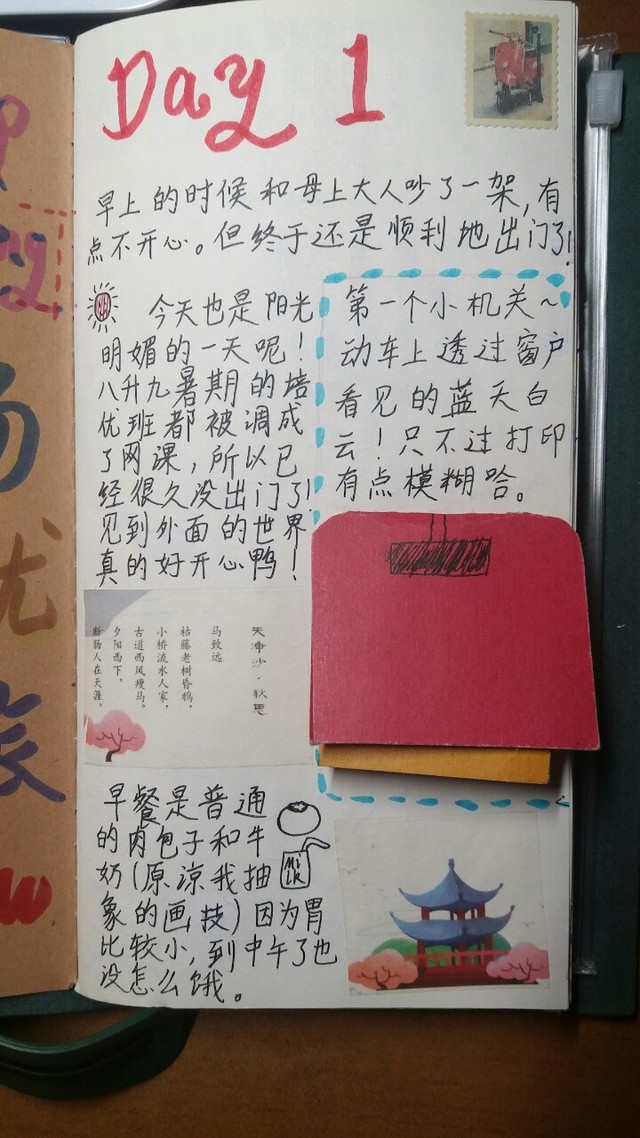 Day 1
早上的时候和母上大人吵了一架,有
点不开心。但终于还是顺利地出门了!
今天也是阳光
明媚的一天呢!
八升九暑期的培
优班都被调成
了网课,所以已
经很久没出门了!
见到外面的世界
真的好开心鸭!
第一个小机关~
动车上透过窗户
看见的蓝天白
云!只不过打印
有点模糊哈。
天净沙·秋思
马致远
枯藤老树昏鸦,
小桥流水人家,
古道西风瘦马。
夕阳西下,
断肠人在天涯。
早餐是普通
的肉包子和牛
奶(原谅我抽
象的画技)因为胃
比较小,到中午了也
没怎么饿。
MiLK
优